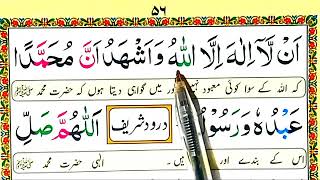 ۵۶
اَنْ لَّآ اِلٰهَ اِلَّا اللّٰهُ وَاَشْهَدُ اَنَّ مُحَمَّدًا
کہ اللہ کے سوا کوئی معبود نہیں اور میں گواہی دیتا ہوں کہ حضرت محمد ﷺ
عَبْدُهٗ وَرَسُوْلُ درود شریف اَللّٰهُمَّ صَلِّ
اس کے بندے اور ہیں۔ الٰہی حضرت محمد ﷺ